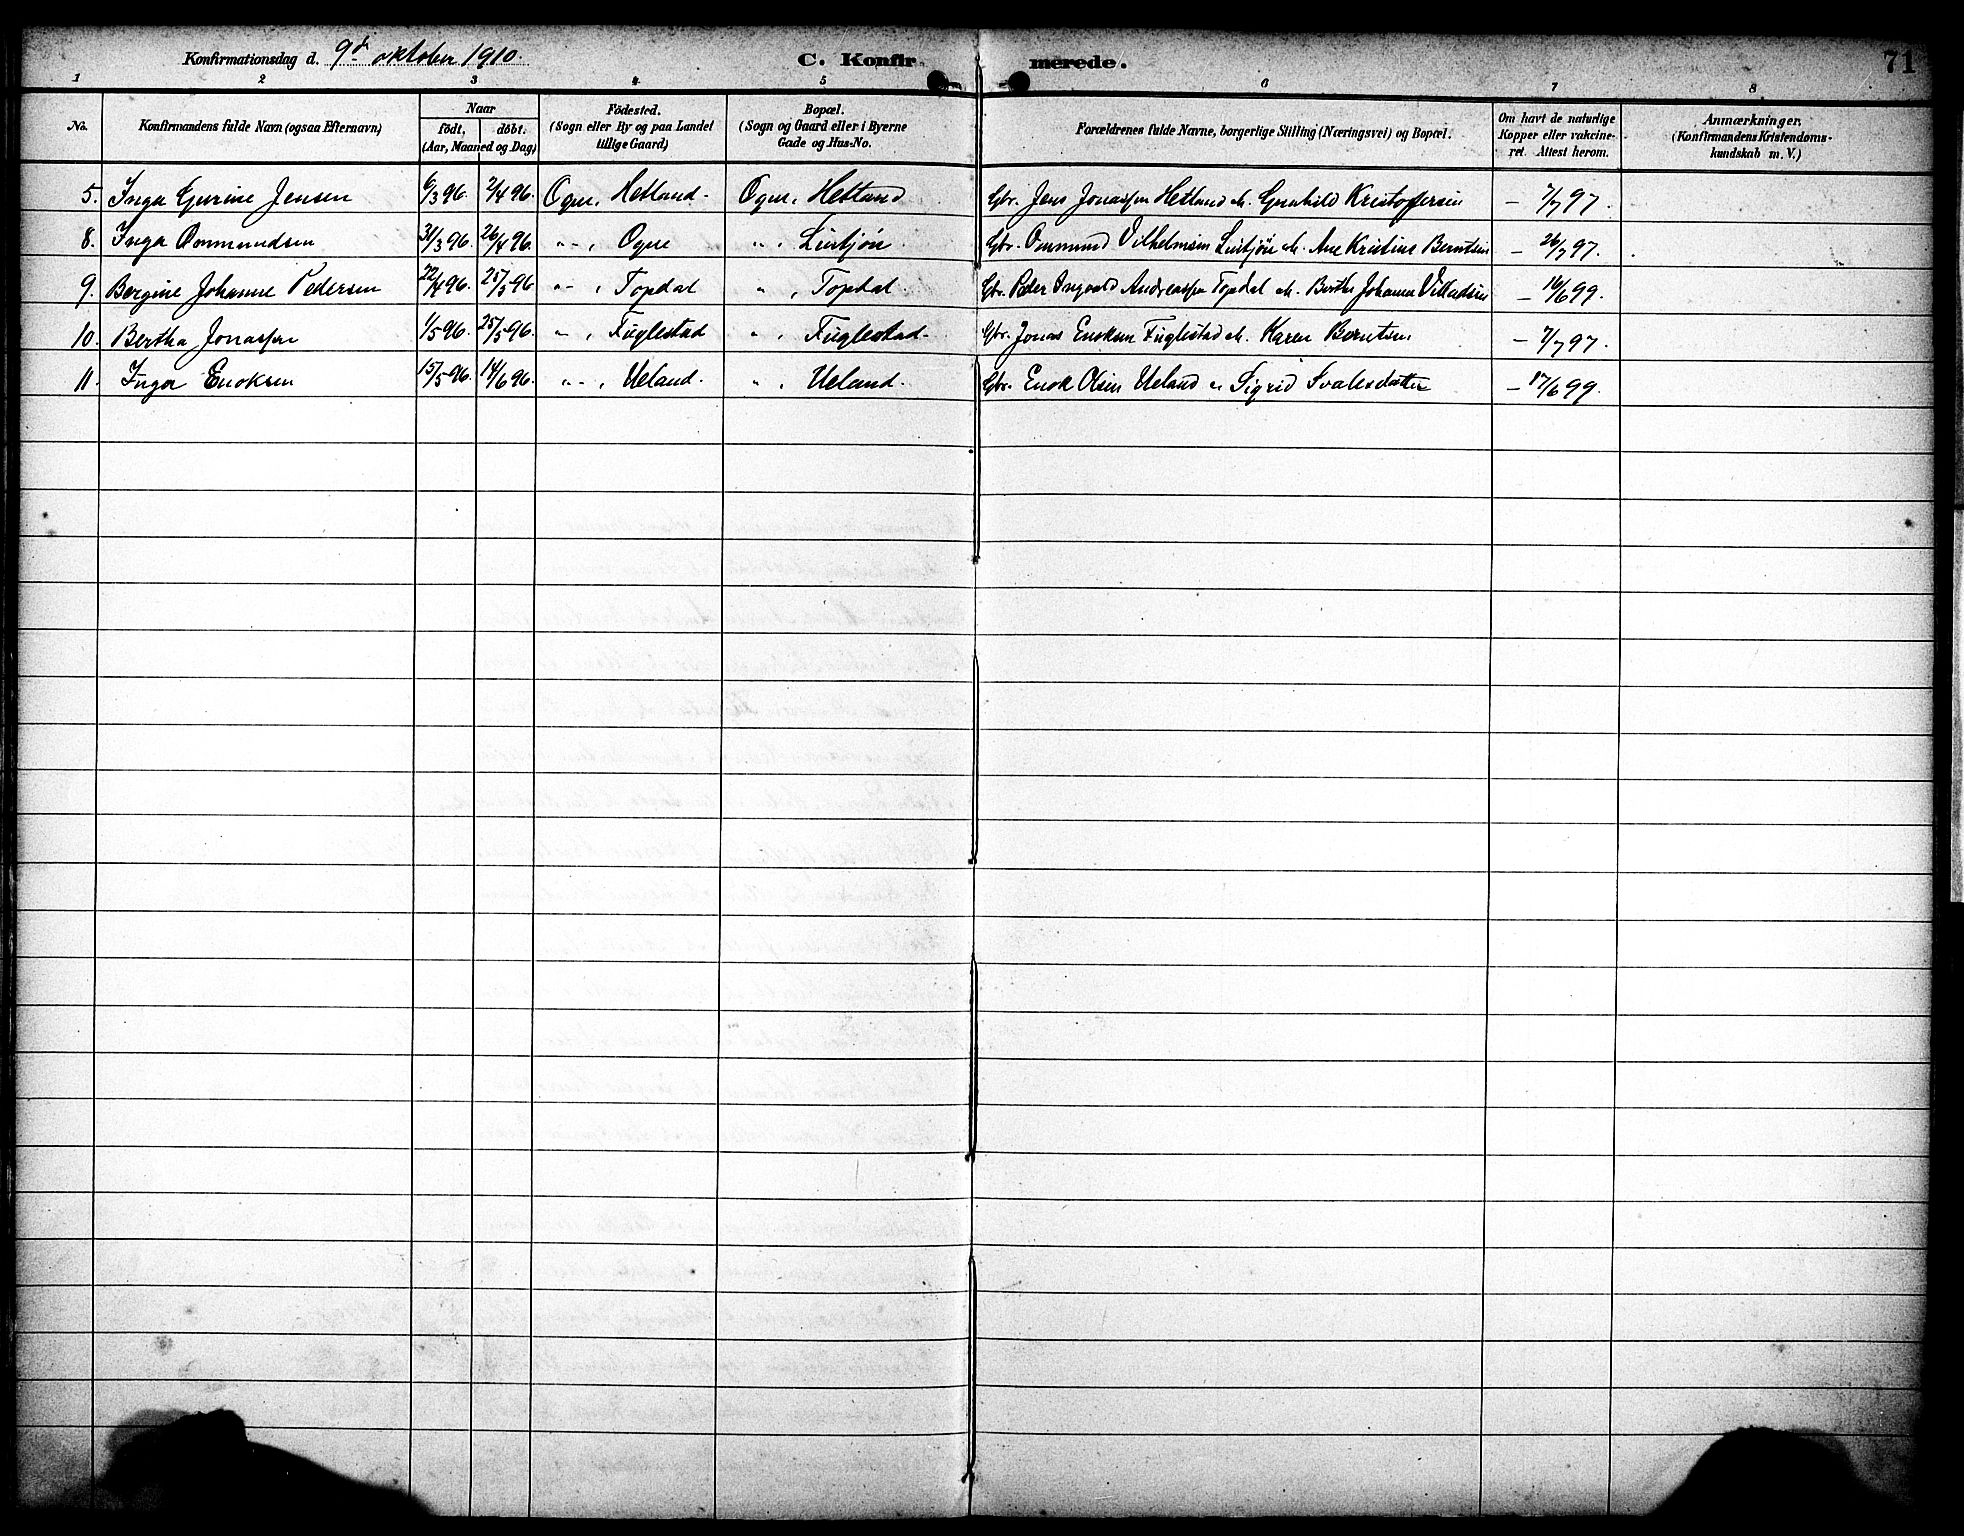 Konfirmationsdag d. 9de oktober 1910. C. Konfirmerede. 71
1 2 3 4 5 6 7 8
No. Konfirmandens fulde Navn (ogsaa Efternavn) Naar født, døbt. (Aar, Maaned og Dag) Födested. (Sogn eller By og paa Landet tillige Gaard) Bopæl. (Sogn og Gaard eller i Byerne Gade og Hus-No. Forældrenes fulde Navne, borgerlige Stilling (Næringsvei) og Bopæl. Om havt de naturlige Kopper eller vakcineret. Attest herom. Anmærkninger. (Konfirmandens Kristendomskundskab m. V.)
5. Inga Gurine Jensen 6/3 96. 7/4 96. Ogne, Hetland. Ogne, Hetland Gbr. Jens Jonassen Hetland & Gunhild Kristoffersen – 7/7 97.
8. Inga Ommundsen 31/3 96. 26/4 96. -"-, Ogne ", Linjøn. Gbr. Ommund Vilhelmsen & Ane Kristine Berntsen – 26/7 97.
9. Bergine Johanne Pedersen 22/4 96. 25/5 96 -"-, Topdal ", Topdal. Gbr. Peder Ingvald Andreassen Topdal & Berthe Johanne Villadsen – 16/6 99.
10. Bertha Jonassen 1/5 96. 25/5 96. -"-, Fuglestad ", Fuglestad. Gbr. Jonas Enoksen Fuglestad & Karen Berntsen – 7/7 97.
11. Inga Enoksen 15/5 96. 14/6 96. -"-, Ueland. ", Ueland. Gbr. Enok Olsen Ueland & Sigrid Svalesdatter – 17/6 99.